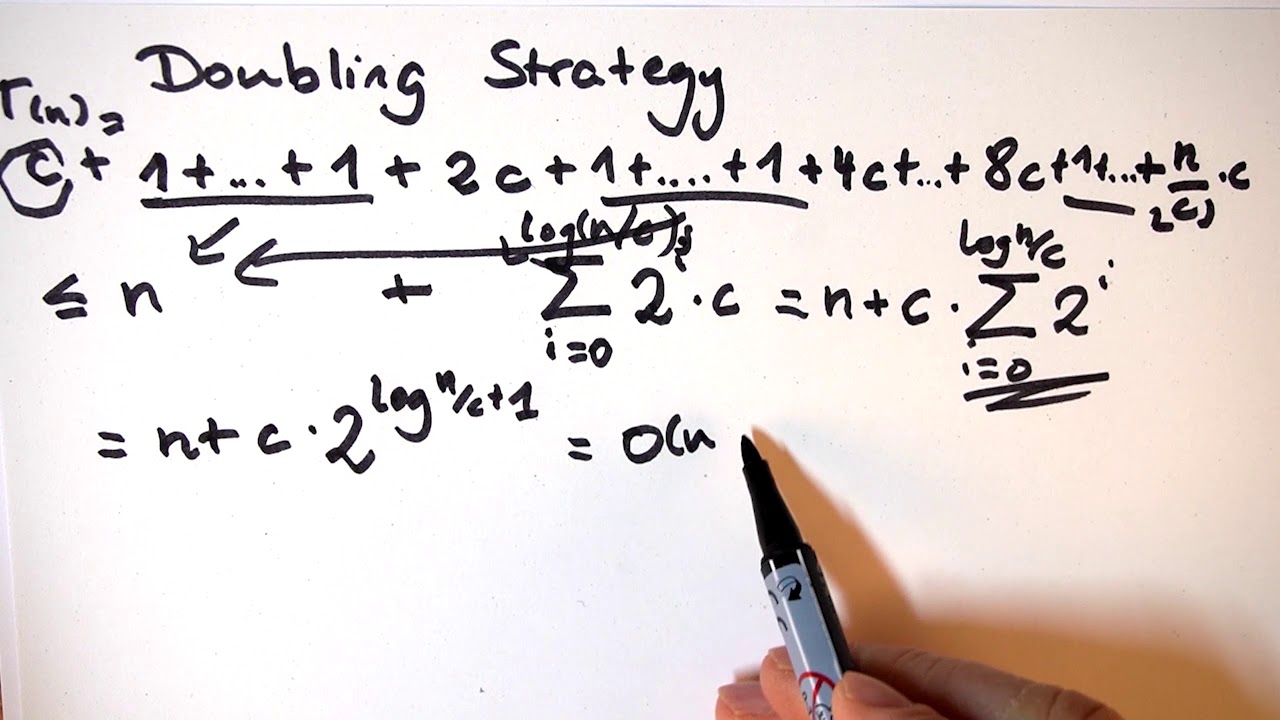 Doubling Strategy
T(n) =
c + 1+...+1 + 2c + 1+....+1 + 4c+...+ 8c+1+...+ n/2c · c
≤ n + ∑_{i=0}^{log(n/c)} 2^i · c = n + c · ∑_{i=0}^{log n/c} 2^i
= n + c · 2^{log n/c + 1} = O(n